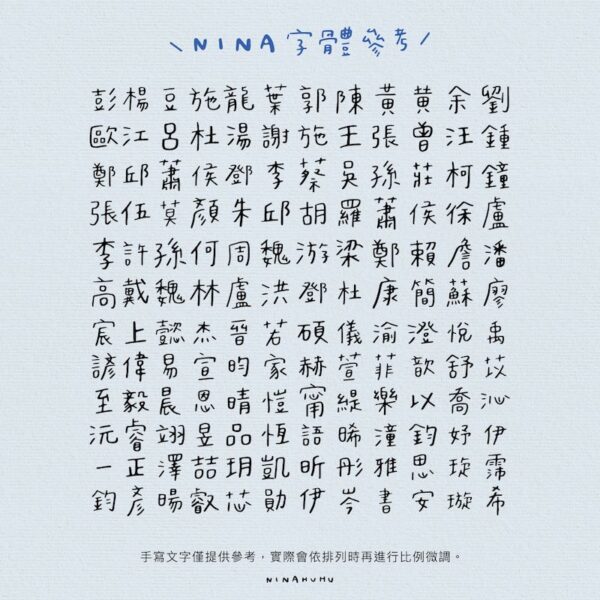 \ NINA 字體參考 /
彭楊豆施龍葉郭陳黃黃余劉
歐江呂杜湯謝施王張曾汪鍾
鄭邱蕭侯鄧李蔡吳孫莊柯鐘
張伍莫顏朱邱胡羅蕭侯徐盧
李許孫何周魏游梁鄭賴詹潘
高戴魏林盧洪鄧杜康簡蘇廖
宸上懿杰晉若碩儀渝澄悅禹
諺偉易宣昀家赫萱菲歆舒苡
至毅晨恩晴愷甯緹樂以喬沁
沅睿翊昱品恆語晞潼鈞妤伊
一正澤喆玥凱昕彤雅思琁霈
鈞彥暘叡芯勛伊岑書安璇希
手寫文字僅提供參考，實際會依排列時再進行比例微調。
NINAHUHU